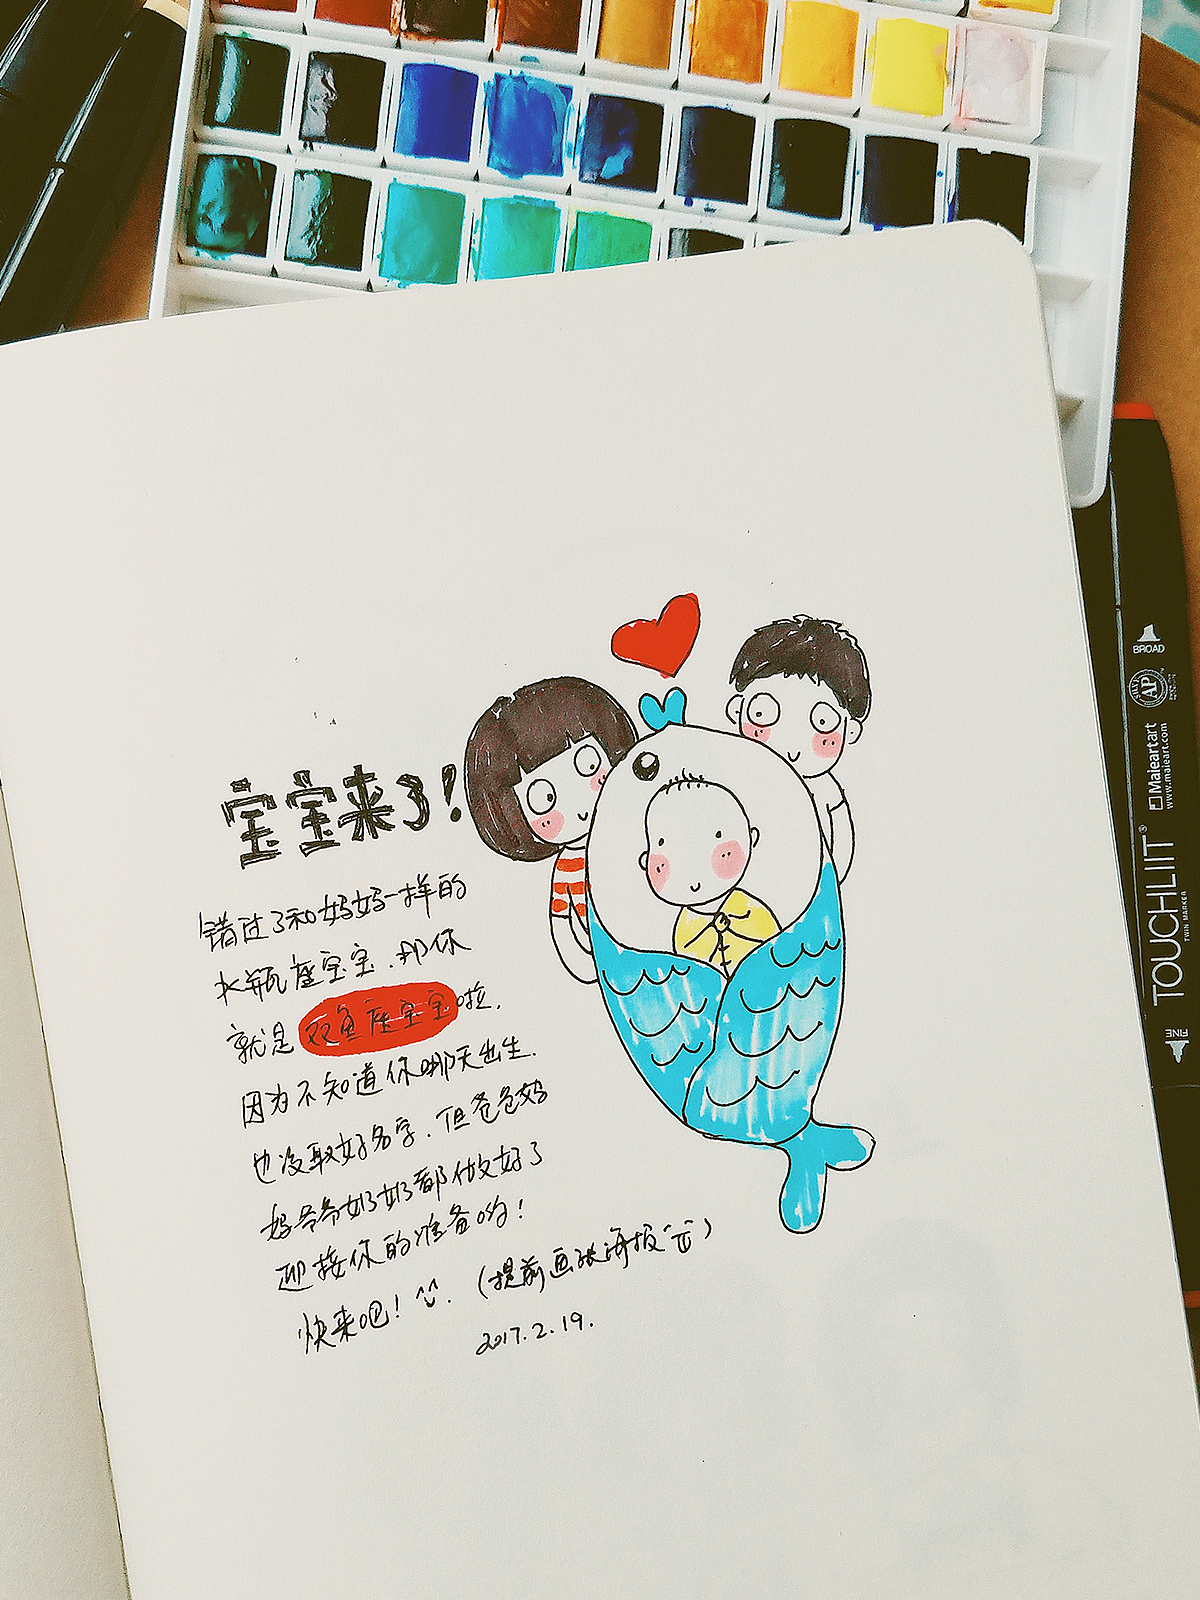 宝宝来了!
错过了和妈妈一样的
水瓶座宝宝.那你
就是双鱼座宝宝啦.
因为不知道你哪天出生.
也没取好名字.但爸爸妈
妈爷爷奶奶都做好了
迎接你的准备哟!
快来吧! ^^.(提前画张海报)
2017.2.19.
BROAD
AP
Maieartart
www.maieart.com
TOUCHLIIT
TWIN MARKER
FINE